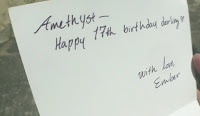 Amethyst —
Happy 17th birthday, darling!!
With love,
Ember